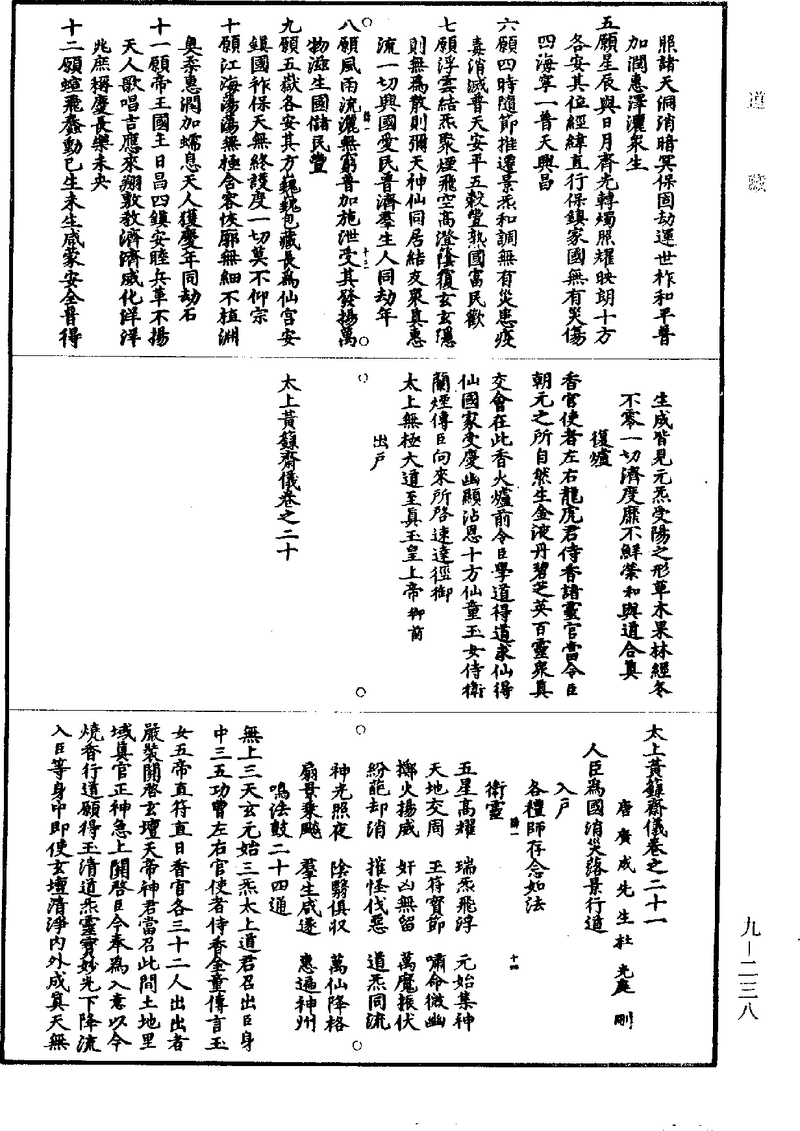 道藏
照諸天洞消暗冥保固劫運世祚和平普
加潤惠澤灑眾生
五願星辰與日月齊光轉燭照耀映朗十方
各安其位經緯直行保鎮家國無有災傷
四海寧一普天興昌
六願四時隨節推遷景炁和調無有災患疫
毒消滅普天安平五穀豐熟國富民歡
七願浮雲結炁聚煙飛空高澄陰覆玄玄隱
則無為散則彌天神仙同居結友眾真惠
流一切興國愛民普濟羣生人同劫年
八願風雨流灑無窮普加施泄受其發揚萬
物滋生國儲民豐
九願五嶽各安其方巍巍包藏長為仙宮安
鎮國祚保天無終護度一切莫不仰宗
十願江海蕩蕩無極含容恢廓無細不植淵
奧黍惠潤加蠕息天人獲慶年同劫石
十一願帝王國主日昌四鎮安睦兵革不揚
天人歌唱吉應來翔敷教濟濟威化洋洋
兆庶稱慶長樂未央
十二願蝖飛蠢動已生未生咸蒙安全普得
生成皆見元炁受陽之形草木果林經冬
不零一切濟度靡不鮮榮和與道合真
復爐
香官使者左右龍虎君侍香諸靈官當令臣
朝元之所自然生金液丹碧芝英百靈眾真
交會在此香火爐前令臣學道得道求仙得
仙國家受慶幽顯沾恩十方仙童玉女侍衛
蘭煙傳臣向來所啓速達徑御
太上無極大道至真玉皇上帝御前
出戶
太上黃籙齋儀卷之二十
太上黃籙齋儀卷之二十一
唐廣成先生杜光庭刪
人臣為國消災醮景行道
入戶
各禮師存念如法
衛靈
五星高耀 瑞炁飛浮 元始集神
天地交周 玉符寶節 嘯命徹幽
擲火揚威 奸凶無留 萬魔振伏
紛葩却消 摧怪伐惡 道炁同流
神光照夜 陰翳俱収 萬仙降格
扇景乘飈 羣生咸遂 惠遍神州
鳴法鼓二十四通
無上三天玄元始三炁太上道君召出臣身
中三五功曹左右官使者侍香金童傳言玉
女五帝直符直日香官各三十二人出出者
嚴裝關啓玄壇天帝神君當召此間土地里
域真官正神急上關啓臣今奉為入意以今
燒香行道願得玉清道炁靈寶妙光下降流
入臣等身中即使玄壇清淨內外成真天無
九—二三八